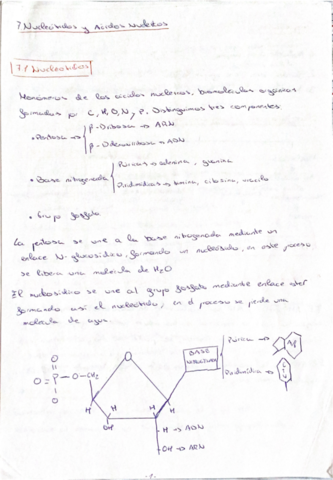 7 Nucleótidos y Ácidos nucleicos
7.1 Nucleótidos
Monómeros de los ácidos nucleicos, biomoléculas orgánicas
formadas por C, H, O, N, P. Distinguimos tres componentes:
• Pentosa → β-Ribosa → ARN.
β-Desoxirribosa → ADN.
• Base nitrogenada Púricas → adenina, guanina
Pirimidínicas → timina, citosina, uracilo
• Grupo fosfato
La pentosa se une a la base nitrogenada mediante un
enlace N-glucosídico, formando un nucleósido, en este proceso
se libera una molécula de H2O
El nucleósido se une al grupo fosfato mediante enlace éster
formando así el nucleótido, en el proceso se pierde una
molécula de agua.
Púrica → A G
BASE
Pirimidínica → C T U
O
O = P - O - CH2
O
O
H H H H
OH
H → ADN
OH → ARN